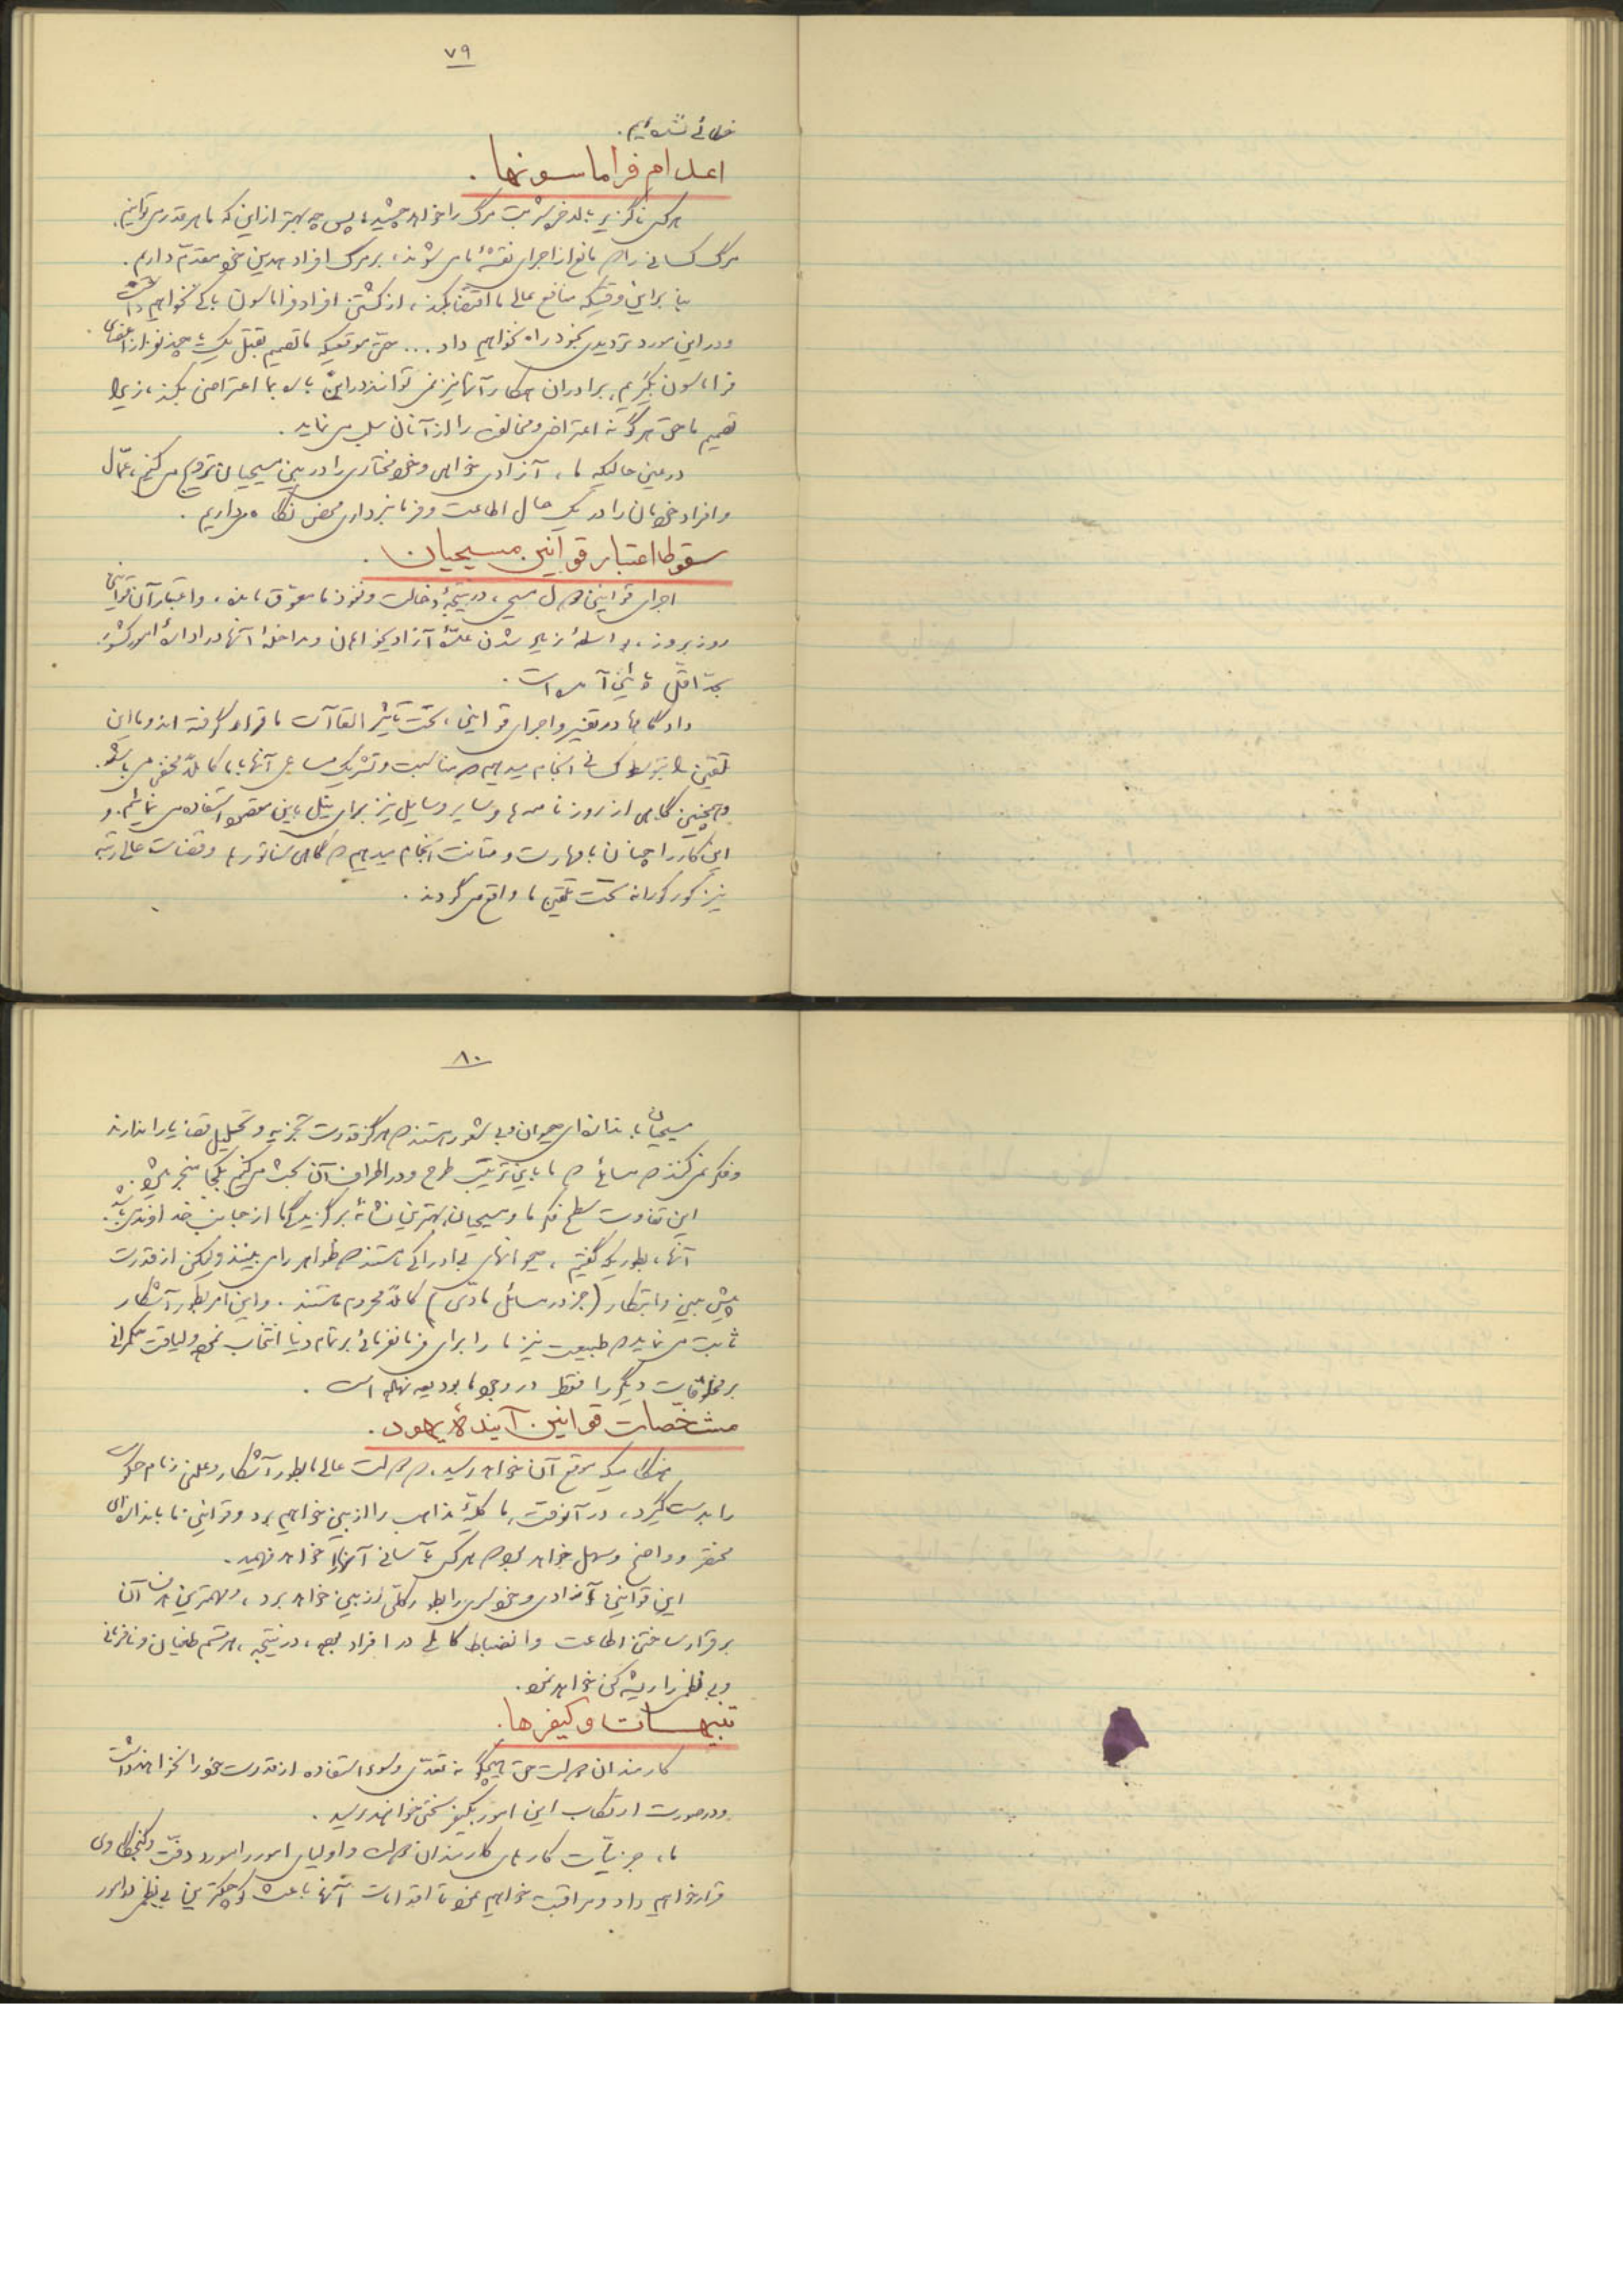 ۷۹
خطائی نشده‌ایم.
اعدام فراماسونها.
هرکس ناگزیر بالاخره شربت مرگ را خواهد چشید، پس چه بهتر از این که ما هرقدر می‌توانیم،
مرگ کسانی را که مانع از اجرای نقشهٔ ما می‌شوند، بر مرگ افراد همدین خود مقدّم داریم.
بنابراین وقتیکه منافع عالی ما اقتضا بکند، از کشتن افراد فراماسون باکی نخواهیم داشت
و در این مورد تردیدی بخود راه نخواهیم داد... حتی موقعیکه ما تصمیم بقتل یک یا چند نفر از اعضای
فراماسون بگیریم، برادران همکار آنها نیز نمی‌توانند در این باره بما اعتراضی بکنند، زیرا
تصمیم ما حق هرگونه اعتراض و مخالفت را از آنان سلب می‌نماید.
در عین حالیکه ما، آزادی خواهی و خودمختاری را در بین مسیحیان ترویج می‌کنیم، عمّال
و افراد خودمان را در یک حال اطاعت و فرمانبرداری محض نگاه می‌داریم.
سقوط اعتبار قوانین مسیحیان.
اجرای قوانین دول مسیحی، در نتیجهٔ دخالت و نفوذ ما معوّق مانده، و اعتبار آن قوانین
روز بروز، بواسطهٔ زیاد شدن عدّهٔ آزادیخواهان و مداخلهٔ آنها در ادارهٔ امور کشور،
بحدّ اقلّ پائین آمده است.
دادگاه‌ها در تفسیر و اجرای قوانین، تحت تأثیر القاآت ما قرار گرفته‌اند و ما این
تلقین را بتوسط کسانی انجام میدهیم که مناسبت و تشریک مساعی آنها با ما کاملاً مخفی می‌باشد.
و همچنین گاهی از روزنامه‌ها و سایر وسایل نیز برای نیل باین مقصود استفاده می‌نمائیم. و
این کار را چنان با مهارت و متانت انجام میدهیم که گاهی سناتورها و قضات عالی رتبه
نیز کورکورانه تحت تلقین ما واقع می‌گردند.
۸۰
مسیحیان باندازه‌ای حیوان و بی شعور هستند که هرگز قدرت تجزیه و تحلیل قضایا را ندارند
و فکر نمی‌کنند که مسائلی که ما باین ترتیب طرح و در اطراف آن بحث می‌کنیم بکجا منجر میشود.
این تفاوت سطح فکر ما و مسیحیان، بهترین نشانهٔ برگزیدگی ما از جانب خداوند می‌باشد.
آنها، بطوریکه گفتیم، حیوانهای بی ادراکی هستند که ظواهر را می‌بینند ولیکن از قدرت
پیش بینی و ابتکار (جز در مسائل مادّی) کاملاً محروم هستند. و این امر بطور آشکار
ثابت می‌نماید که طبیعت نیز ما را برای فرمانفرمائی بر تمام دنیا انتخاب نموده و لیاقت حکمرانی
بر مخلوقات دیگر را فقط در وجود ما بودیعه نهاده است.
مشخّصات قوانین آیندهٔ یهود.
هنگامیکه موقع آن خواهد رسید، که دولت عالی ما بطور آشکار و علنی زمام حکومت
را بدست گیرد، در آنوقت، ما کلیّهٔ مذاهب را از بین خواهیم برد و قوانین ما باندازه‌ای
مختصر و واضح و سهل خواهد بود که هرکس بآسانی آنها را خواهد فهمید.
این قوانین آزادی و خودسری را بطور کلّی از بین خواهد برد، و مهمترین هدف آن
برقرار ساختن اطاعت و انضباط کاملی در افراد بوده، در نتیجه، هر قسم طغیان و نافرمانی
و بی نظمی را ریشه کن خواهد نمود.
تنبیهات و کیفرها.
کارمندان دولت حق هیچگونه تعدّی و سوء استفاده از قدرت خود را نخواهند داشت
و در صورت ارتکاب این امور بکیفر سختی خواهند رسید.
ما، جزئیّات کارهای کارمندان دولت و اولیای امور را مورد دقّت و کنجکاوی
قرار خواهیم داد و مراقبت خواهیم نمود تا اقدامات آنها باعث کوچکترین بی نظمی در امور